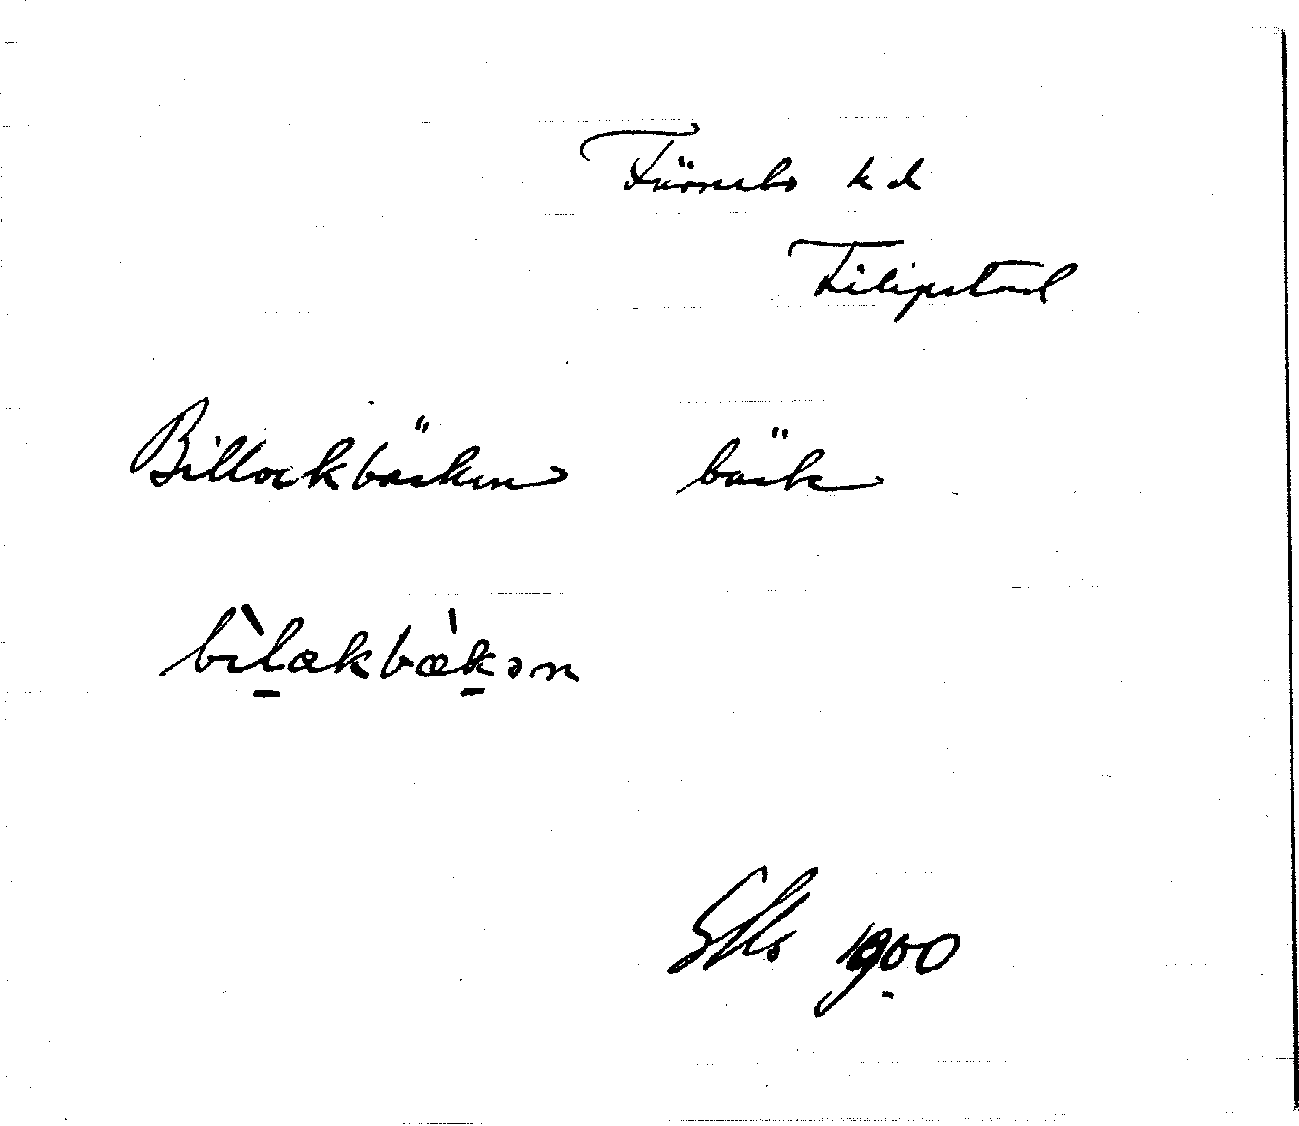 Färnebo hd
Filipstad
Billockbäcken bäck
bìlakbæ̀kən
1900